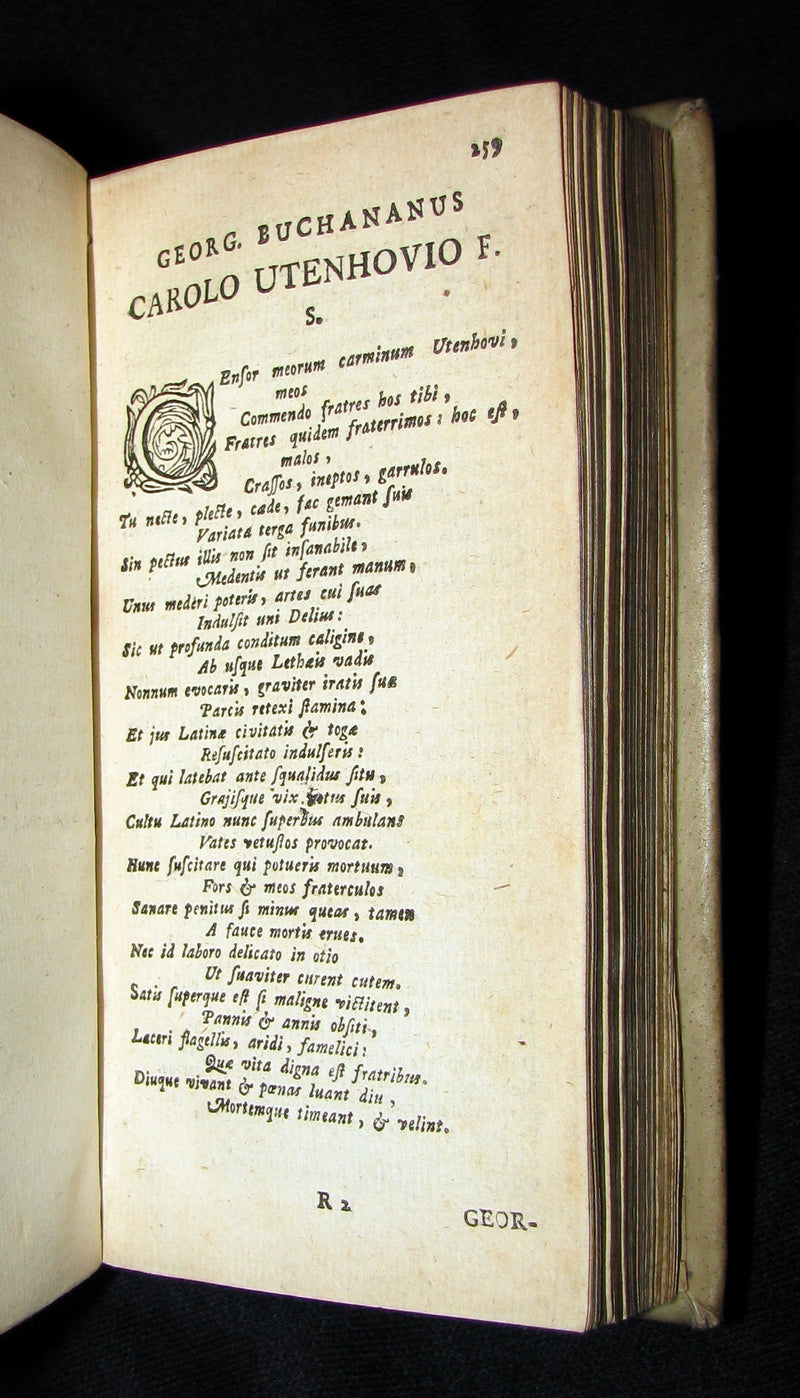 259
GEORG. BUCHANANUS
CAROLO UTENHOVIO F.
S.
CEnſor meorum carminum Utenhovi,
meos
Commendo fratres hos tibi,
Fratres quidem fraterrimos: hoc eſt,
malos,
Craſſos, ineptos, garrulos.
Tu necte, plecte, cæde, fac gemant ſuis
Variata terga funibus.
Sin pectus illis non ſit inſanabile,
Medentis ut ferant manum,
Unus mederi poteris, artes cui ſuas
Indulſit uni Delius:
Sic ut profunda conditum caligine,
Ab uſque Lethæis vadis
Nonnum evocaris, graviter iratis ſuæ
Parcis retexi ſtamina:
Et jus Latinæ civitatis & togæ
Reſuſcitato indulſeris:
Et qui latebat ante ſqualidus ſitu,
Grajiſque vix ſuis,
Cultu Latino nunc ſuperbus ambulans
Vates vetuſtos provocat.
Hunc ſuſcitare qui potueris mortuum,
Fors & meos fraterculos
Sanare penitus ſi minus queas, tamen
A fauce mortis erues.
Nec id laboro delicato in otio
Ut ſuaviter curent cutem.
Satis ſuperque eſt ſi maligne victitent,
Pannis & annis obſiti,
Laceri flagellis, aridi, famelici:
Quæ vita digna eſt fratribus.
Diuque vivant & pœnas luant diu,
Mortemque timeant, & velint.
R 2
GEOR-